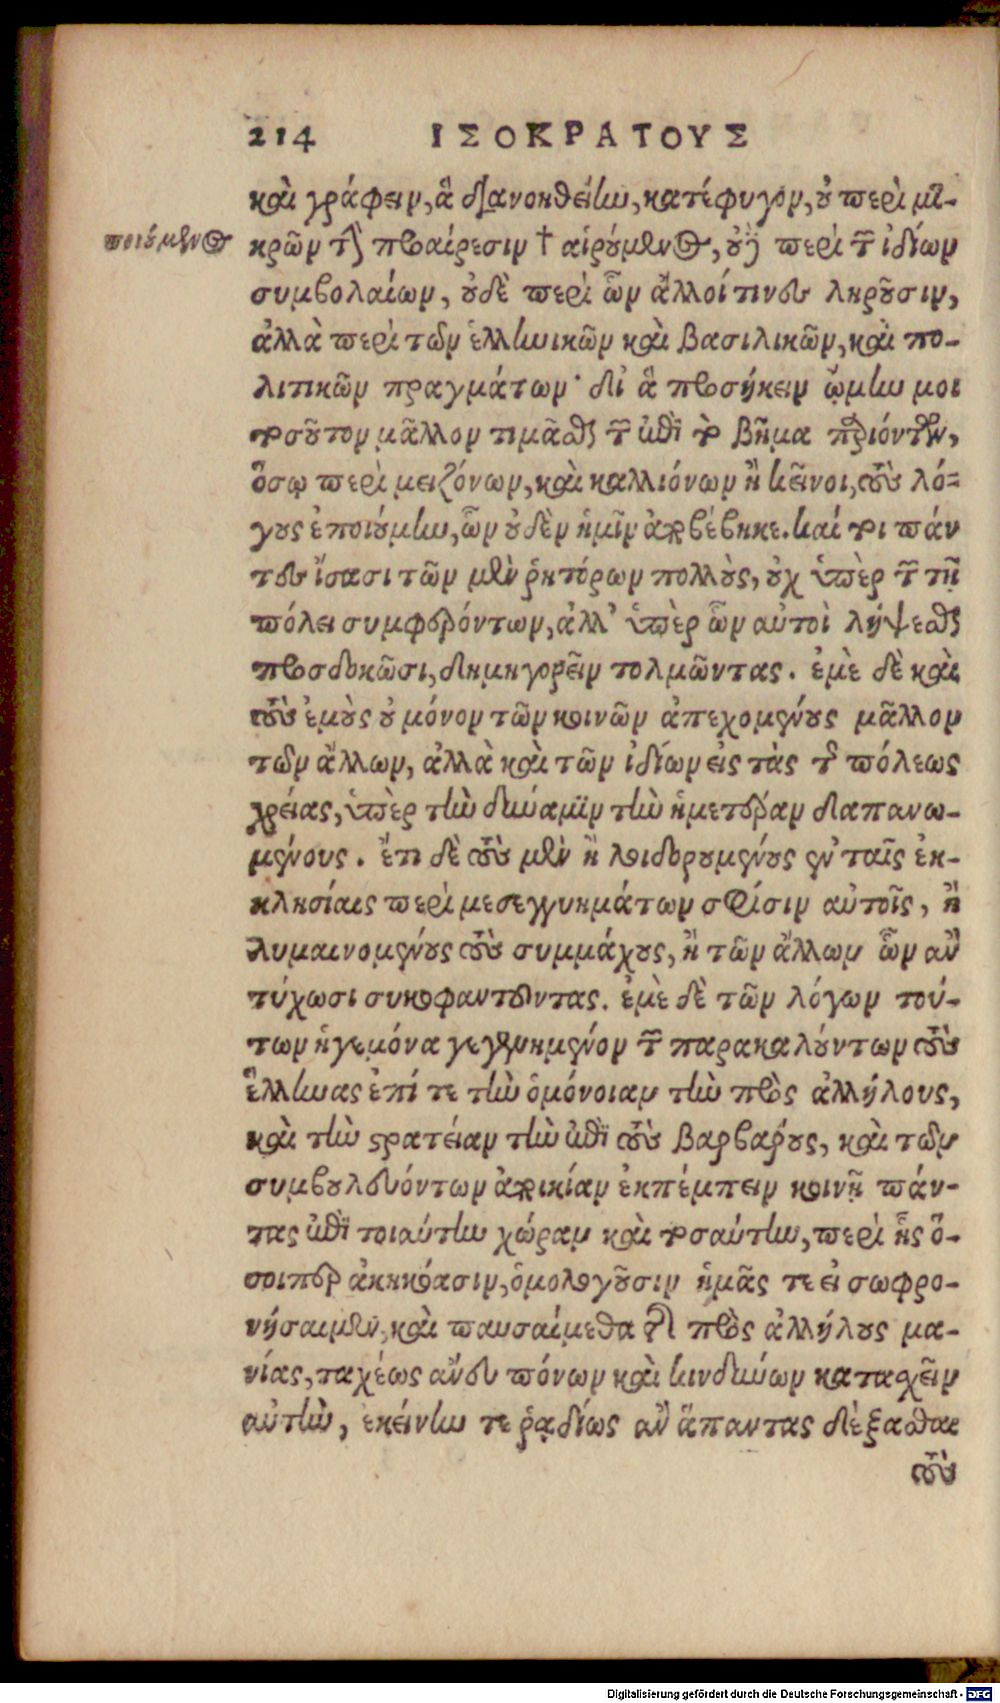 214 ΙΣΟΚΡΑΤΟΥΣ
καὶ γράφειν, ἃ διανοηθείην, κατέφυγον, οὐ περὶ μι-
ποιούμενος
κρῶν τὴν προαίρεσιν † αἱρούμενος, οὐδὲ περὶ τῶν ἰδίων
συμβολαίων, οὐδὲ περὶ ὧν ἄλλοί τινες ληροῦσιν,
ἀλλὰ περὶ τῶν ἑλληνικῶν καὶ βασιλικῶν, καὶ πο-
λιτικῶν πραγμάτων· δι' ἃ προσήκειν ᾤμην μοι
τοσοῦτον μᾶλλον τιμᾶσθαι τῶν ἐπὶ τὸ βῆμα παριόντων,
ὅσῳ περὶ μειζόνων, καὶ καλλιόνων ἢ κεῖνοι, τοὺς λό-
γους ἐποιούμην, ὧν οὐδὲν ἡμῖν ἀποβέβηκε. καί τοι πάν
τες ἴσασι τῶν μὲν ῥητόρων πολλοὺς, οὐχ ὑπὲρ τῶν τῇ
πόλει συμφερόντων, ἀλλ' ὑπὲρ ὧν αὐτοὶ λήψεσθαι
προσδοκῶσι, δημηγορεῖν τολμῶντας. ἐμὲ δὲ καὶ
τοὺς ἐμοὺς οὐ μόνον τῶν κοινῶν ἀπεχομένους μᾶλλον
τῶν ἄλλων, ἀλλὰ καὶ τῶν ἰδίων εἰς τὰς τῆς πόλεως
χρείας, ὑπὲρ τὴν δύναμιν τὴν ἡμετέραν δαπανω-
μένους. ἔτι δὲ τοὺς μὲν ἢ λοιδορουμένους ἐν ταῖς ἐκ-
κλησίαις περὶ μεσεγγυημάτων σφίσιν αὐτοῖς, ἢ
λυμαινομένους τοὺς συμμάχους, ἢ τῶν ἄλλων ὧν ἂν
τύχωσι συκοφαντοῦντας. ἐμὲ δὲ τῶν λόγων τού-
των ἡγεμόνα γεγενημένον τῶν παρακαλούντων τοὺς
ἕλληνας ἐπί τε τὴν ὁμόνοιαν τὴν πρὸς ἀλλήλους,
καὶ τὴν στρατείαν τὴν ἐπὶ τοὺς βαρβάρους, καὶ τῶν
συμβουλευόντων ἀποικίαν ἐκπέμπειν κοινῇ πάν-
τας ἐπὶ τοιαύτην χώραν καὶ τοσαύτην, περὶ ἧς ὅ-
σοιπερ ἀκηκόασιν, ὁμολογοῦσιν ἡμᾶς τε εἰ σωφρο-
νήσαιμεν, καὶ παυσαίμεθα τῆς πρὸς ἀλλήλους μα-
νίας, ταχέως ἄνευ πόνων καὶ κινδύνων κατασχεῖν
αὐτὴν, ἐκείνην τε ῥᾳδίως ἂν ἅπαντας δέξασθαι
τοὺς
Digitalisierung gefördert durch die Deutsche Forschungsgemeinschaft - DFG